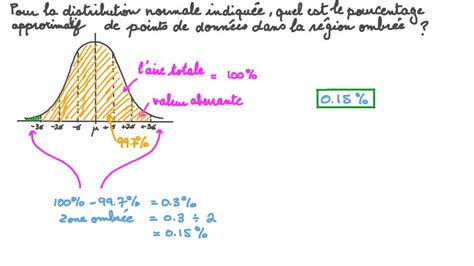 Pour la distribution normale indiquée, quel est le pourcentage
approximatif de points de données dans la région ombrée ?
l'aire totale = 100%
valeur aberrante
0.15%
-3σ -2σ -σ μ +σ +2σ +3σ
99.7%
100% - 99.7% = 0.3%
zone ombrée = 0.3 ÷ 2
= 0.15%